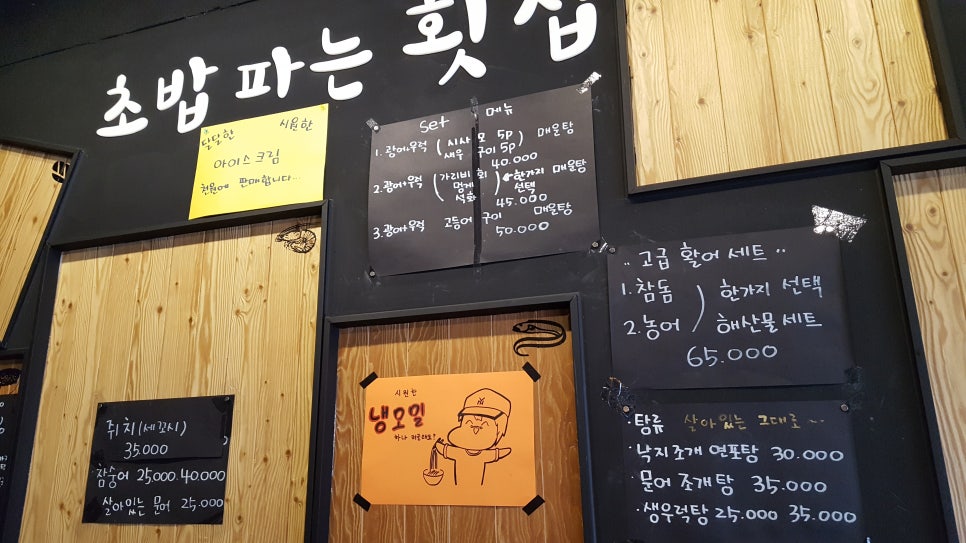 초밥 파는 횟집
달달한 시원한
아이스크림
천원에 판매합니다...
set 메뉴
1. 광어+우럭 (시사모 5p 새우구이 5p) 매운탕
40.000
2. 광어+우럭 (가리비 회 멍게 석화) 한가지 선택 매운탕
45.000
3. 광어+우럭 고등어 구이 매운탕
50.000
.. 고급 활어 세트 ..
1. 참돔
2. 농어
한가지 선택
해산물세트
65.000
시원한
냉모밀
하나 하실래요?
쥐치 (세꼬시)
35.000
·참숭어 25.000.40.000
살아있는 문어 25.000
·탕류 살아있는 그대로~
·낙지조개 연포탕 30.000
·문어 조개탕 35.000
·생우럭탕 25.000 35.000